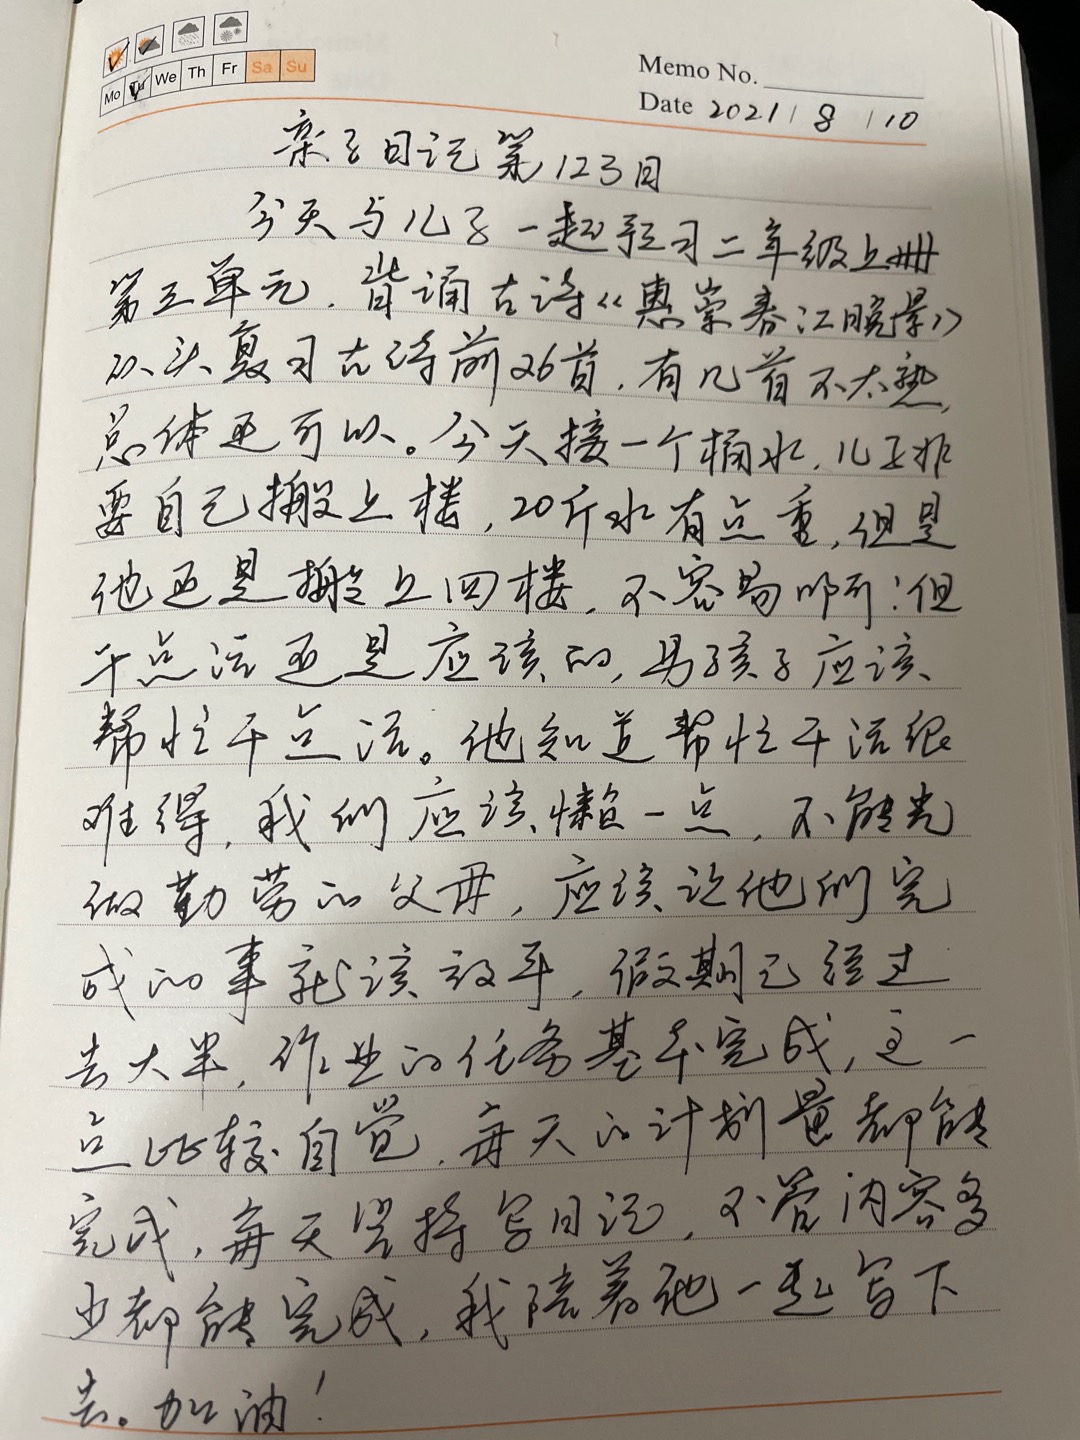 Mo Tu We Th Fr Sa Su
Memo No.
Date 2021/8/10
亲子日记第123日
今天与儿子一起预习二年级上册
第三单元，背诵古诗《惠崇春江晓景》
从头复习古诗前26首，有几首不太熟，
总体还可以。今天接一个桶水，儿子非
要自己搬上楼，20斤水有点重，但是
他还是搬上四楼，不容易啊！但
干点活还是应该的，男孩子应该
帮忙干点活。他知道帮忙干活很
难得，我们应该懒一点，不能光
做勤劳的父母，应该让他们完
成的事就该放手，假期已经过
去大半，作业的任务基本完成，这一
点比较自觉，每天的计划量都能
完成，每天坚持写日记，不管内容多
少都能完成，我陪着他一起写下
去。加油！